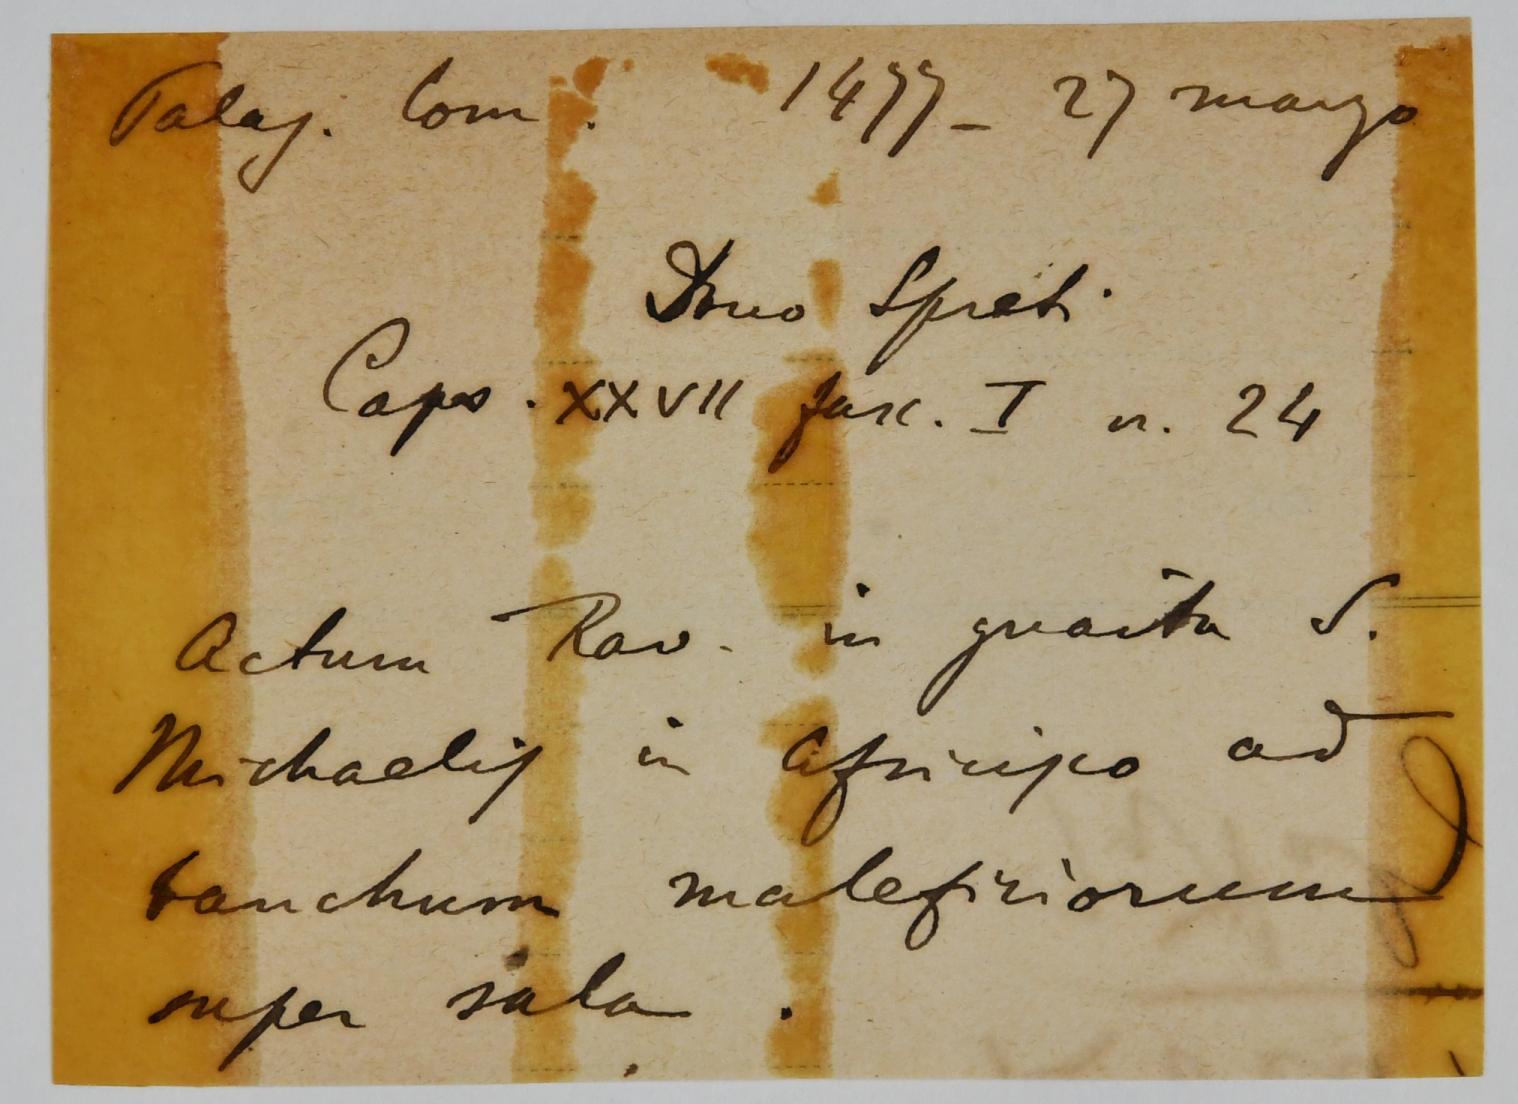 Palaz. Com. 1477 - 27 marzo
Spreti
Caps. XXVII fasc. I n. 24
Actum Rav. in guaita S.
Michaelis in Africisco ad
banchum maleficiorum
super sala.